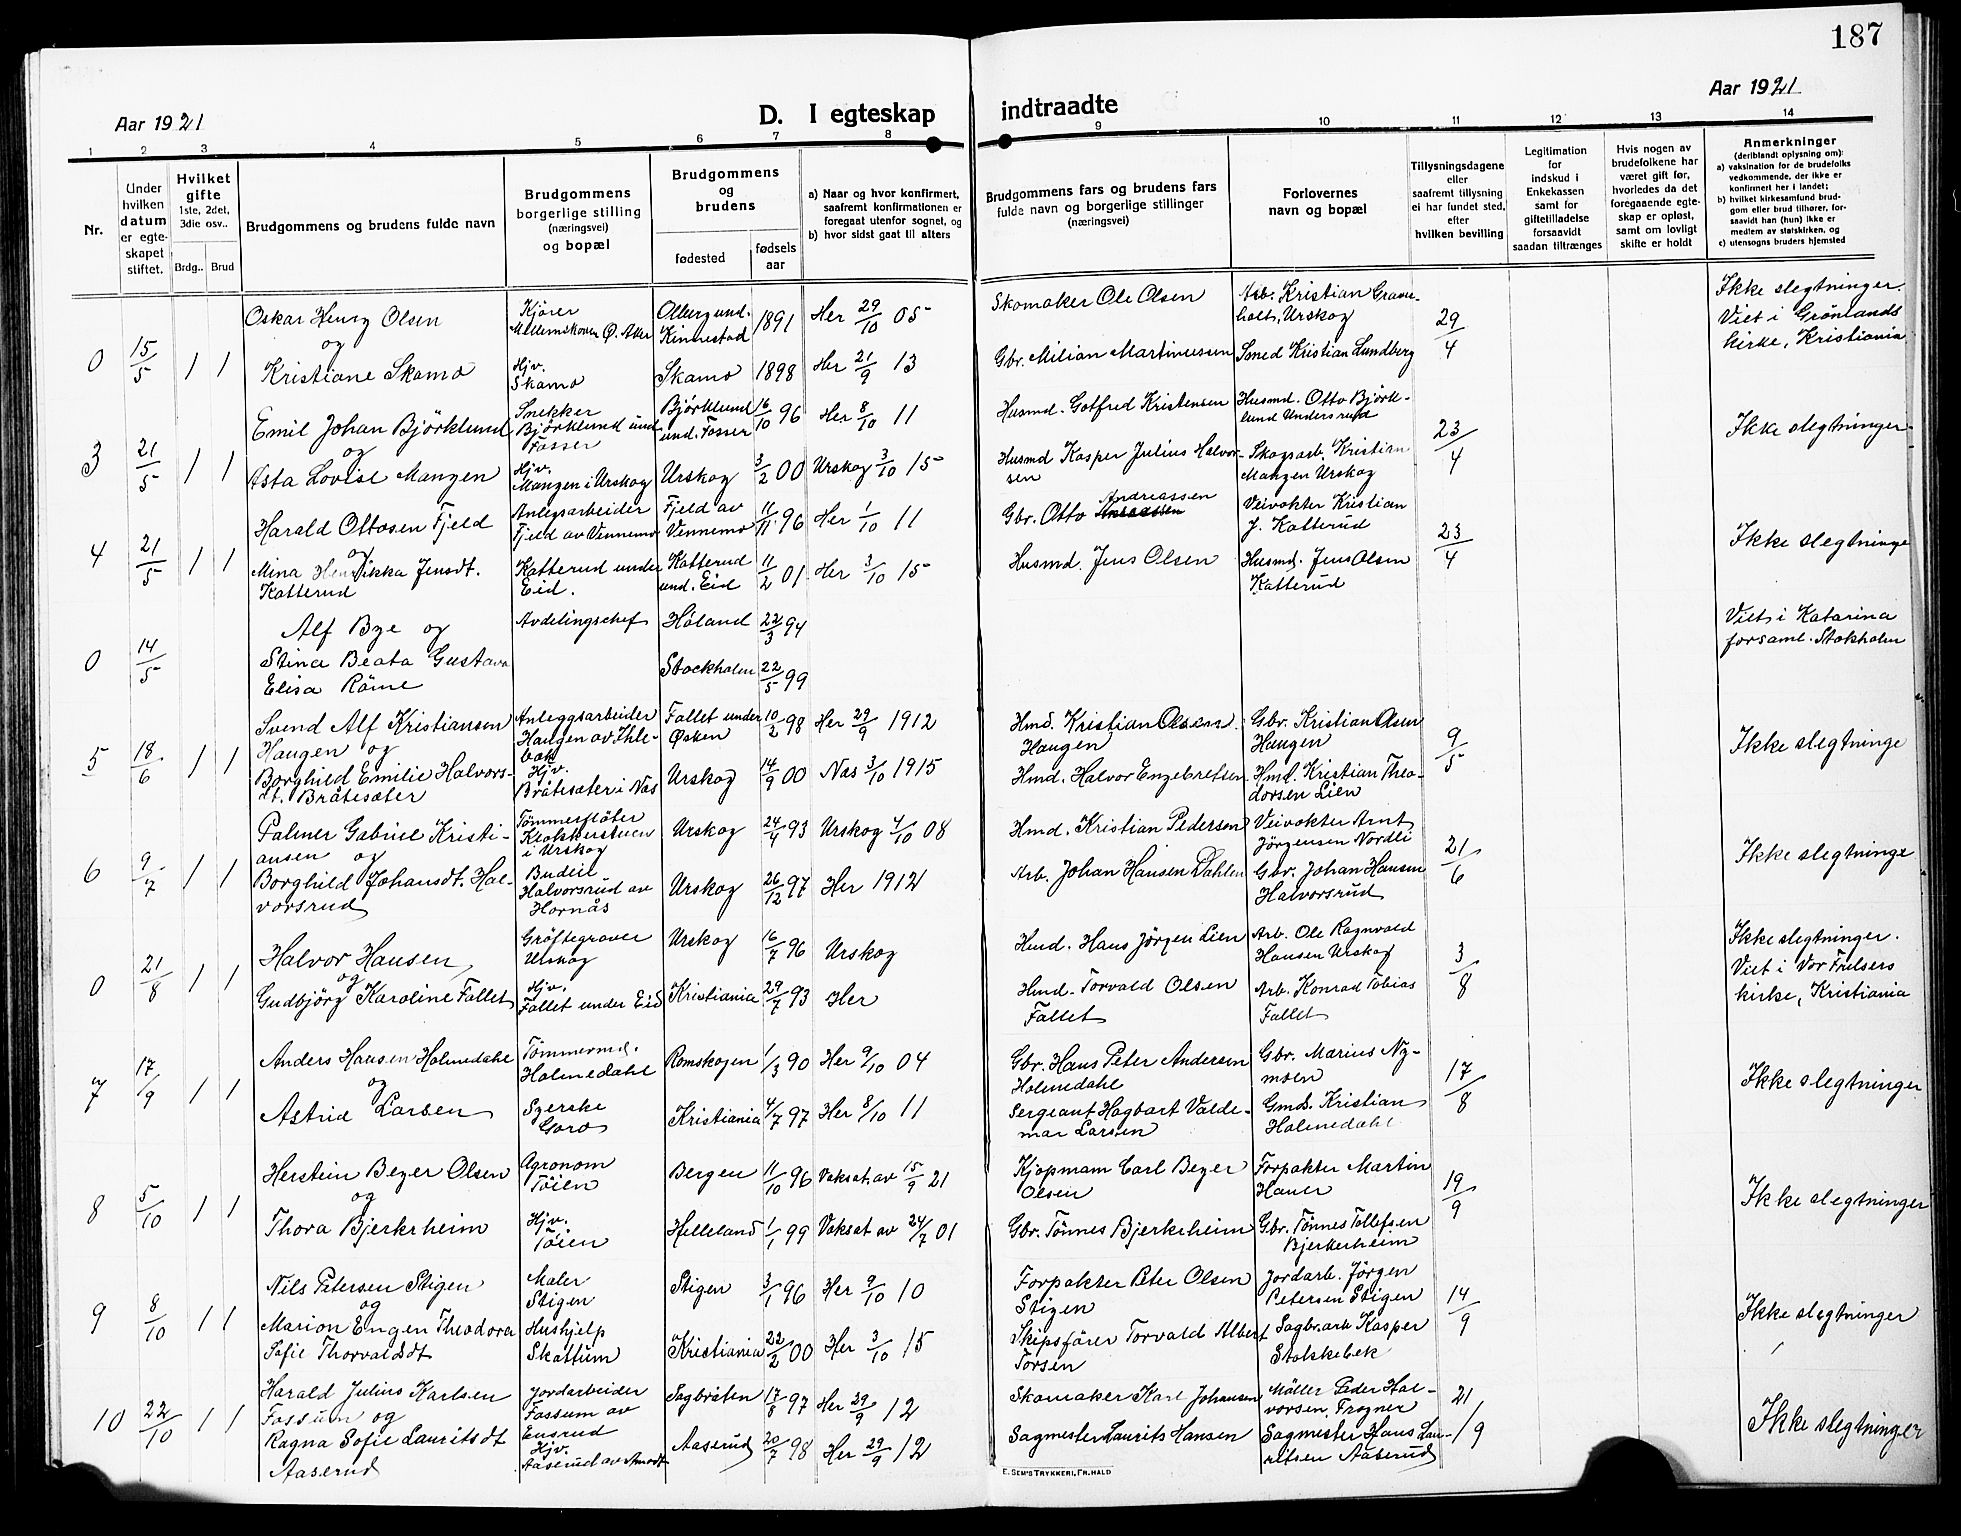 187
Aar 1921
D. I egteskap
indtraadte
Aar 1921
1 2 3 4 5 6 7 8 9 10 11 12 13 14
Nr.
Under hvilken datum er egteskapet stiftet.
Hvilket gifte 1ste, 2det, 3die osv..
Brdg.. Brud
Brudgommens og brudens fulde navn
Brudgommens borgerlige stilling (næringsvei) og bopæl
Brudgommens og brudens
fødested
fødsels aar
a) Naar og hvor konfirmert, saafremt konfirmationen er foregaat utenfor sognet, og
b) hvor sidst gaat til alters
Brudgommens fars og brudens fars fulde navn og borgerlige stillinger (næringsvei)
Forlovernes navn og bopæl
Tillysningsdagene eller saafremt tillysning ei har fundet sted, efter hvilken bevilling
Legitimation for indskud i Enkekassen samt for giftetilladelse forsaavidt saadan tiltrænges
Hvis nogen av brudefolkene har været gift før, hvorledes da det foregaaende egteskap er opløst, samt om lovligt skifte er holdt
Anmerkninger (deriblandt oplysning om):
a) vaksination for de brudefolks vedkommende, der ikke er konfirmert her i landet;
b) hvilket kirkesamfund brudgom eller brud tilhører, forsaavidt han (hun) ikke er medlem av statskirken, og
c) utensogns bruders hjemsted
0 15/5 1 1
Oskar Henry Olsen
og
Kristiane Skamo
Kjører
Mellemskoven Ø. Aker
Hjv.
Skamo
Ollberg und.
Kinnestad 1891 Her 29/10 05
Skamo 1898 Her 21/9 13
Skomaker Ole Olsen
Gbr. Milian Martinussen
Arb. Kristian Graveholt, Urskog
Smed Kristian Lundberg
29/4
Ikke slegtninger.
Viet i Grønlands
kirke, Kristiania
3 21/5 1 1
Emil Johan Björklund
og
Asta Lovise Mangen
Snekker
Björklund und
Fosser
Hjv.
Mangen i Urskog
Björklund
und. Fosser 16/10 96 Her 8/10 11
Urskog 3/2 00 Urskog 3/10 15
Husmd. Gotfred Kristensen
Husmd Kasper Julius Halvorsen
Husmd. Otto Björklund Undersrud
Skogsarb. Kristian
Mangen Urskog
23/4
Ikke slegtninger
4 21/5 1 1
Harald Ottosen Fjeld
og
Mina Henrikka Jensdt.
Katterud
Anlegsarbeider
Fjeld av Vennemo
Katterud under
Eid.
Fjeld av
Vennemo 11/11 96 Her 1/10 11
Katterud
und. Eid 11/2 01 Her 3/10 15
Gbr. Otto Andreassen
Husmd. Jens Olsen
Veivokter Kristian
J. Katterud
Husmd. Jens Olsen
Katterud
23/4
Ikke slegtninge
0 14/5
Alf Bye og
Stina Beata Gustava
Elisa Röme
Avdelingschef
Høland 22/3 94
Stockholm 22/5 99
Viet i Katarina
forsaml. Stokholm
5 18/6 1 1
Svend Alf Kristiansen
Haugen og
Borghild Emilie Halvorsdt. Bråtesæter
Anleggsarbeider
Haugen av Ihlebæk
Hjv.
Bråtesæter i Nas
Fallet under
Øsken 10/2 98 Her 29/9 1912
Urskog 14/9 00 Nas 3/10 1915
Hmd. Kristian Olsen
Haugen
Hmd. Halvor Engebretsen
Gbr. Kristian Olsen
Haugen
Hmd. Kristian Theodorsen Lien
9/5
Ikke slegtninge
6 9/7 1 1
Palmer Gabriel Kristiansen og
Borghild Johansdt. Halvorsrud
Tømmerfløter
Klokkerstuen
i Urskog
Budeie
Halvorsrud av
Hornås
Urskog 24/4 93 Urskog 4/10 08
Urskog 26/12 97 Her 1912
Hmd. Kristian Pedersen
Arb. Johan Hansen Dahlen
Veivokter Arnt
Jörgensen Nordli
Gbr. Johan Hansen
Halvorsrud
21/6
Ikke slegtninge
0 21/8 1 1
Halvor Hansen
og
Gudbjörg Karoline Fallet
Grøftegraver
Urskog
Hjv.
Fallet under Eid
Urskog 16/7 96 Urskog
Kristiania 29/7 93 Her
Hmd. Hans Jörgen Lien
Hmd. Torvald Olsen
Fallet
Arb. Ole Ragnvald
Hansen Urskog
Arb. Konrad Tobias
Fallet
3/8
Ikke slegtninger.
Viet i Vor Frelsers
kirke, Kristiania
7 17/9 1 1
Anders Hansen Holmedahl
og
Astrid Larsen
Tømmermd.
Holmedahl
Syerske
Goro
Romskogen 1/3 90 Her 9/10 04
Kristiania 4/7 97 Her 8/10 11
Gbr. Hans Peter Andersen
Holmedahl
Sergeant Hagbart Valdemar Larsen
Gbr. Marius Nymoen
Gmd. Kristian
Holmedahl
17/8
Ikke slegtninger
8 5/10 1 1
Herstein Beyer Olsen
og
Thora Bjerkrheim
Agronom
Töien
Hjv.
Töien
Bergen 11/10 96 Vaksat. av 15/9 21
Helleland 1/1 99 Vaksat av 24/7 01
Kjøpmann Carl Beyer
Olsen
Gbr. Tönnes Bjerkrheim
Forpakter Martin
Hauer
Gbr. Tönnes Tollefsen
Bjerkerheim
19/9
Ikke slegtninger
9 8/10 1 1
Nils Petersen Stigen
og
Marion Engen Theodora
Sofie Thorvaldsdt
Maler
Stigen
Hushjelp
Skattum
Stigen 3/1 96 Her 9/10 10
Kristiania 22/2 00 Her 3/10 15
Forpakter Peter Olsen
Stigen
Skipsfører Torvald Albert
Torsen
Jordarb. Jörgen
Petersen Stigen
Sagbr.arb Kasper
Stokkebek
14/9
Ikke slegtninger
10 22/10 1 1
Harald Julius Karlsen
Fossum og
Ragna Sofie Lauritsdt
Aaserud
Jordarbeider
Fossum av
Ensrud
Hjv.
Aaserud av Amodt
Sagbråten 17/8 97 Her 29/9 12
Aaserud 20/7 98 Her 29/9 12
Skomaker Karl Johansen
Sagmester Laurits Hansen
Möller Peder Halvorsen, Trogner
Sagmester Hans Lauritsen Aaserud
21/9
Ikke slegtninger
E. SEM'S TRYKKERI, FR.HALD